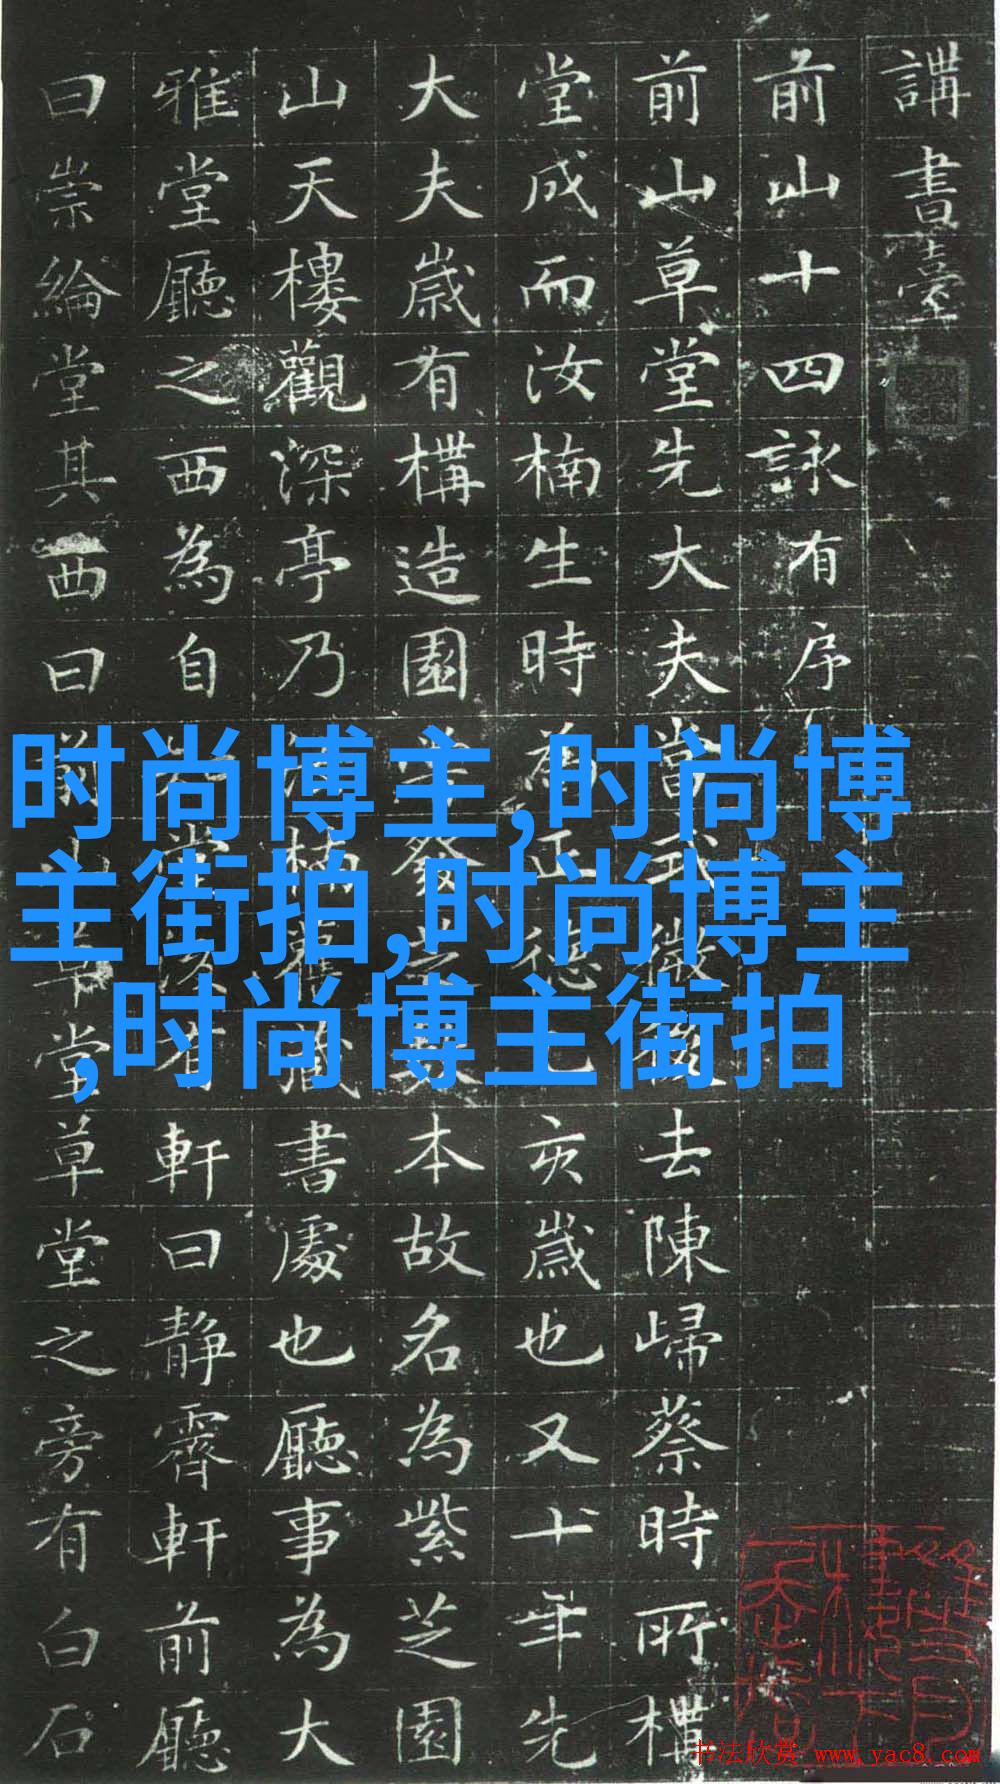 講書臺
前山十四詠有序
前山草堂先大夫當式微去陳歸蔡時所
堂成而汝楠生時為正德亥歲也又十年先
大夫歲有構造園發本故名為紫芝園
山天樓觀深亭乃楠舊藏書處也廳事為大
雅堂廳之西為自堂有軒曰靜霽軒前廳
曰崇綸堂其西曰前山草堂草堂之旁有白石
时尚博主,时尚博
主街拍,时尚博主
,时尚博主街拍
书法欣赏 www.yac8.com